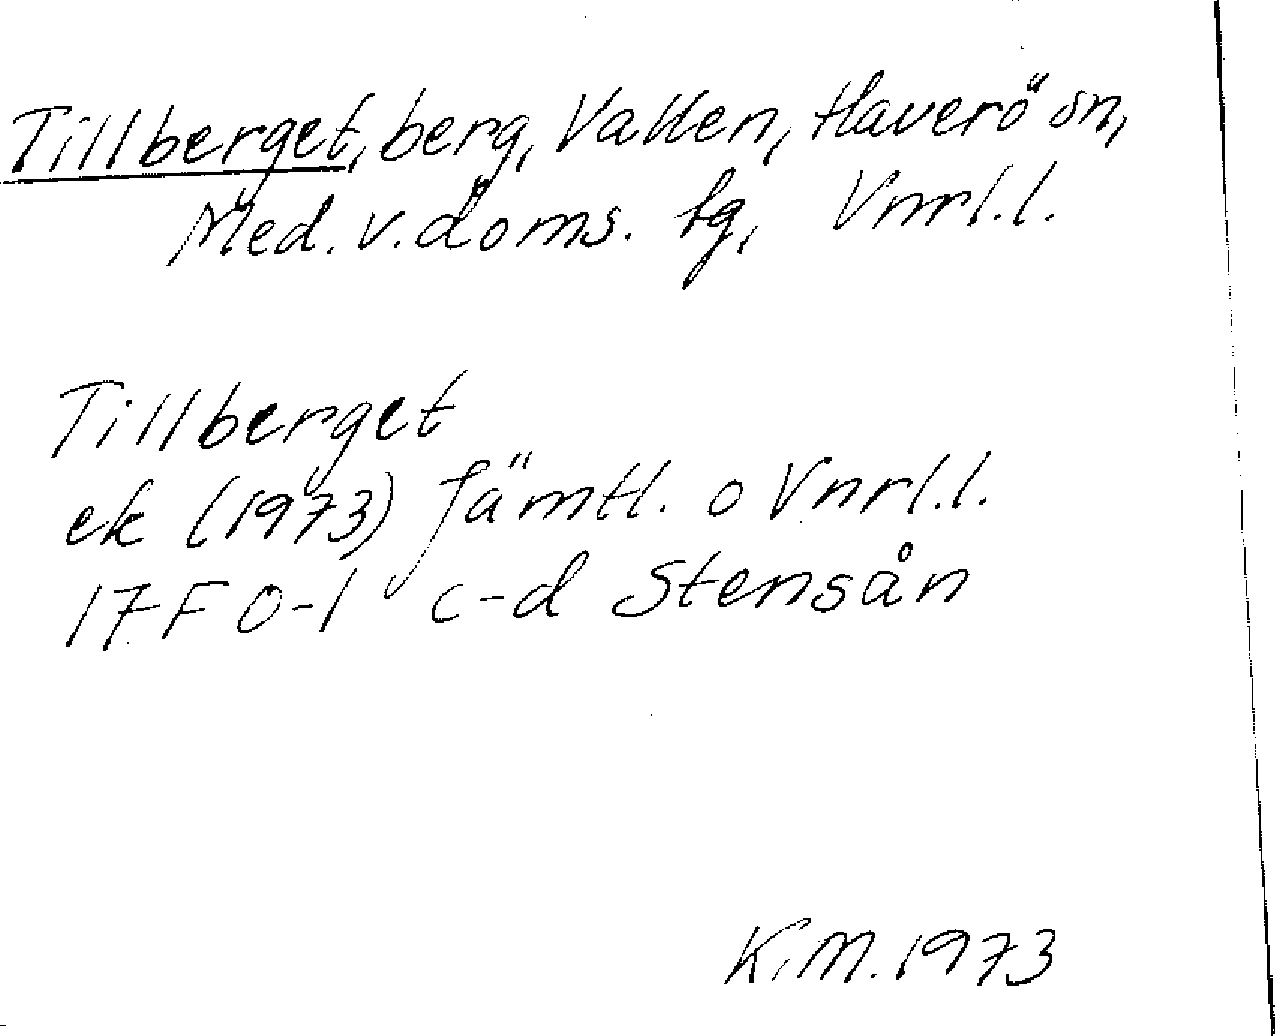 Tillberget, berg, Vallen, Haverö sn,
Med. v. doms. tg, Vnrl.l.
Tillberget
ek (1973) Jämtl. o Vnrl.l.
17F 0-1 c-d Stensån
K.M. 1973